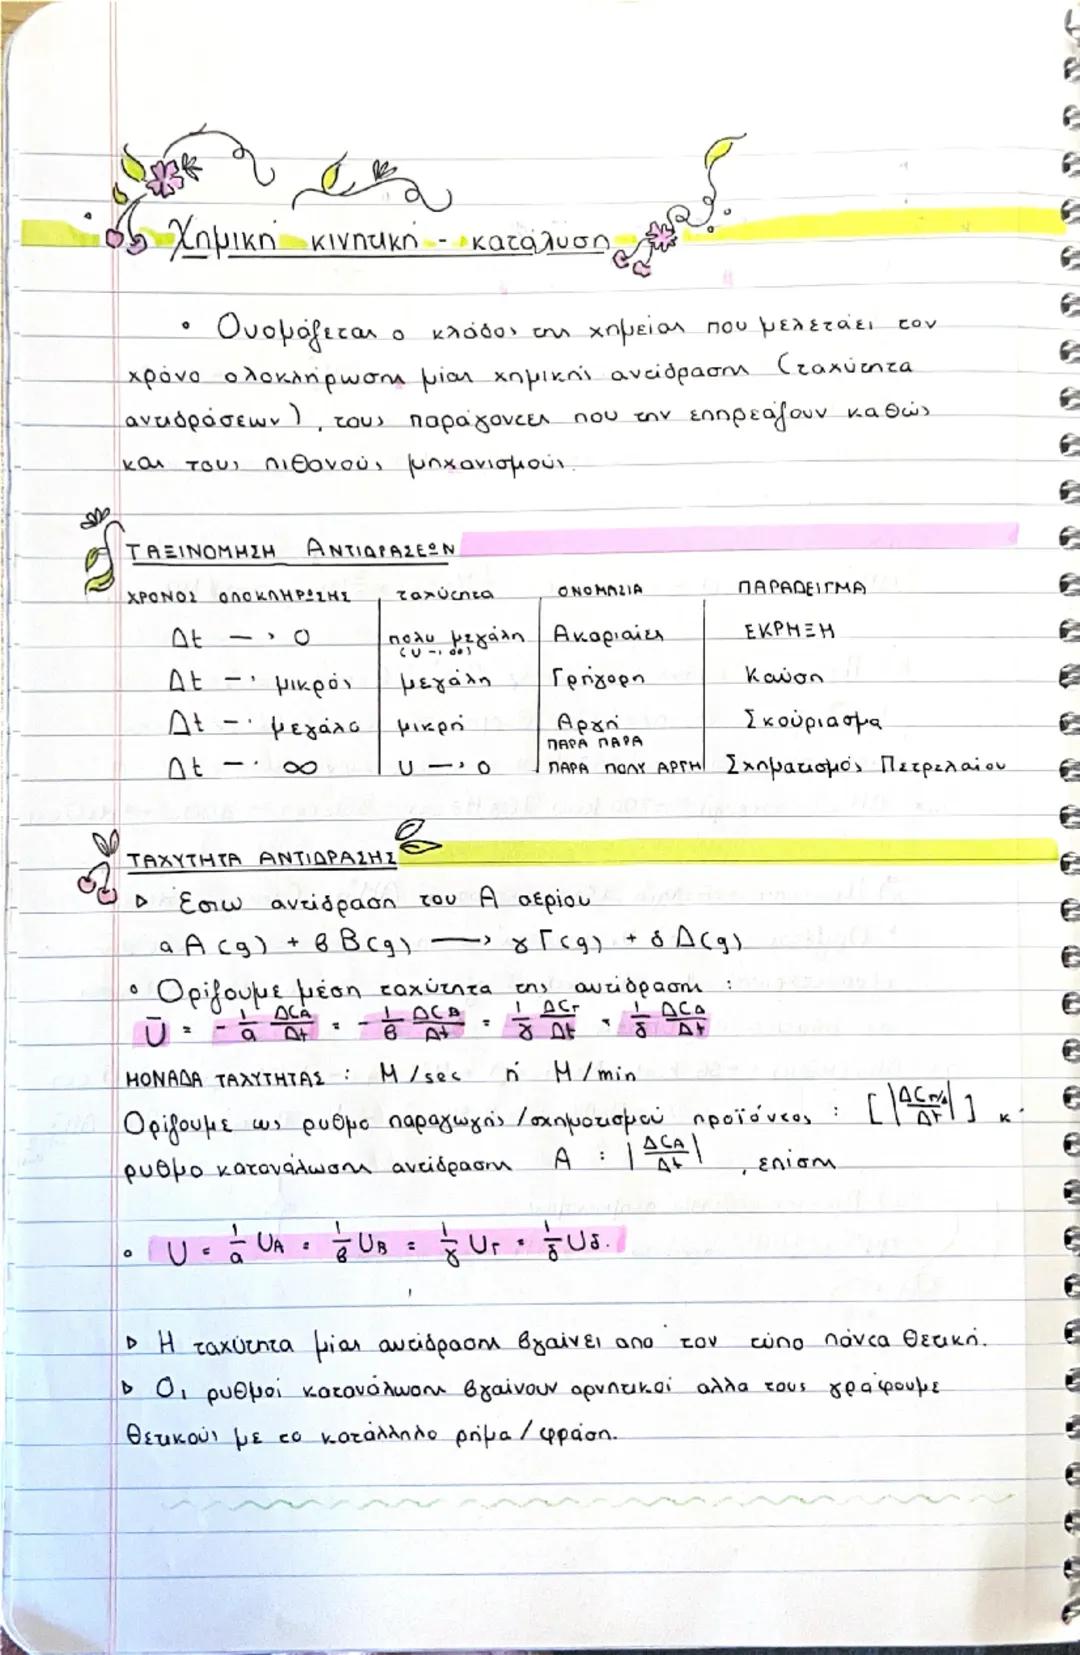 Χημική κινητική - κατάλυση
• Ονομάζεται ο κλάδος της χημείας που μελετάει τον
χρόνο ολοκλήρωσης μίας χημικής αντίδρασης (ταχύτητα
αντιδράσεων), τους παράγοντες που την επηρεάζουν καθώς
και τους πιθανούς μηχανισμούς.
ΤΑΞΙΝΟΜΗΣΗ ΑΝΤΙΔΡΑΣΕΩΝ
ΧΡΟΝΟΣ ΟΛΟΚΛΗΡΩΣΗΣ ταχύτητα ΟΝΟΜΑΣΙΑ ΠΑΡΑΔΕΙΓΜΑ
Δt → 0 πολυ μεγάλη (υ → ∞) Ακαριαίες ΕΚΡΗΞΗ
Δt → μικρός μεγάλη Γρήγορη Καύση
Δt → μεγάλο μικρή Αργή Σκούριασμα
Δt → ∞ υ → 0 ΠΑΡΑ ΠΑΡΑ ΠΑΡΑ ΠΟΛΥ ΑΡΓΗ Σχηματισμός Πετρελαίου
ΤΑΧΥΤΗΤΑ ΑΝΤΙΔΡΑΣΗΣ
▷ Έστω αντίδραση του Α αερίου
αA(g) + βB(g) → γΓ(g) + δΔ(g)
• Ορίζουμε μέση ταχύτητα της αντίδρασης :
Ū = -1/α ΔCA/Δt = -1/β ΔCB/Δt = 1/γ ΔCΓ/Δt = 1/δ ΔCΔ/Δt
ΜΟΝΑΔΑ ΤΑΧΥΤΗΤΑΣ : M/sec ή M/min
Ορίζουμε ως ρυθμο παραγωγής/σχηματισμού προϊόντος : [|ΔCπ/Δt|] κ'
ρυθμο κατανάλωσης αντίδρασης Α : |ΔCA/Δt| , επίσης
• U = 1/α UA = 1/β UB = 1/γ UΓ = 1/δ Uδ.
▷ Η ταχύτητα μίας αντίδρασης βγαίνει απο τον τύπο πάντα θετική.
▷ Οι ρυθμοί κατανάλωσης βγαίνουν αρνητικοί αλλα τους γράφουμε
θετικούς με το κατάλληλο ρήμα/φράση.